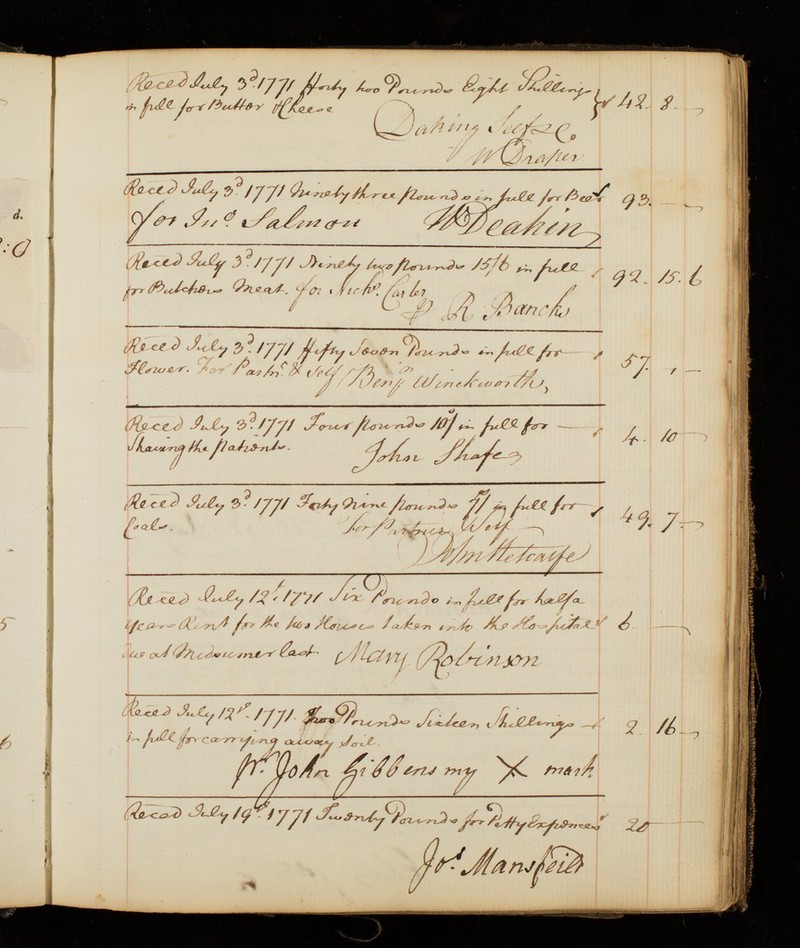 Reced July 3d. 1771 fforty two Pounds Eight Shillings
in full for Butter & Cheese 42. 8. —
Daking Self & Co
W Draper
Reced July 3d. 1771 Ninety three Pounds in full for Beer 93. — —
for Jno. Salmon Wm Deakin
Reced July 3d. 1771 Ninety two Pounds 15/6 in full 92. 15. 6
for Butchers Meat. for Nichs. Carter
P R Banchs
Reced July 3d. 1771 ffifty Seven Pounds in full for 57. — —
Flower. For Partnr. & Self Benjn Winckworth,
Reced July 3d. 1771 Four Pounds 10/ in full for — 4. 10 —
Shaving the Patients.
John Shafe
Reced July 3d. 1771 Forty Nine Pounds 7/ in full for 49. 7. —
Coals. for Partner & Self
John Metcalfe
Reced July 12t. 1771 Six Pounds in full for half a
years Rent for the two Houses taken into the Hospital 6 —
due at Midsumer last Mary Robinson
Reced July 12t. 1771. Two Pounds Sixteen Shillings — 2. 16 —
in full for carrying away soil.
pr. John Gibbens my X mark
Reced July 19t. 1771 Twenty Pounds for Petty Expences 20 —
Jos. Mansfeild
d.
: 0
5